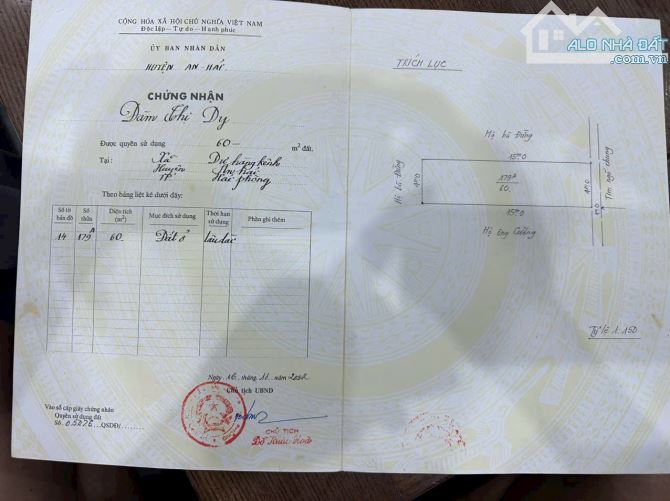 CỘNG HÒA XÃ HỘI CHỦ NGHĨA VIỆT NAM
Độc lập - Tự do - Hạnh phúc
ỦY BAN NHÂN DÂN
HUYỆN AN HẢI
CHỨNG NHẬN
Đàm Thị Dy
Được quyền sử dụng 60 m² đất.
Tại : Xã Dư hàng kênh
Huyện An hải
TP Hải phòng
Theo bảng liệt kê dưới đây:
Số tờ bản đồ
Số thửa
Diện tích (m²)
Mục đích sử dụng
Thời hạn sử dụng
Phần ghi thêm
14 179A 60 Đất ở lâu dài
Ngày 16 tháng 11 năm
Chủ tịch UBND
CHỦ TỊCH
Vào sổ cấp giấy chứng nhận
Quyền sử dụng đất
Số QSDĐ/
ALO NHÀ ĐẤT
.com.vn
TRÍCH LỤC
Hộ bà Đoồng
15m0
Hộ bà Đoồng
4m0
179A
60
4m0
Tim ngõ chung
15m0
Hộ ông Cường
Tỷ lệ 1:150